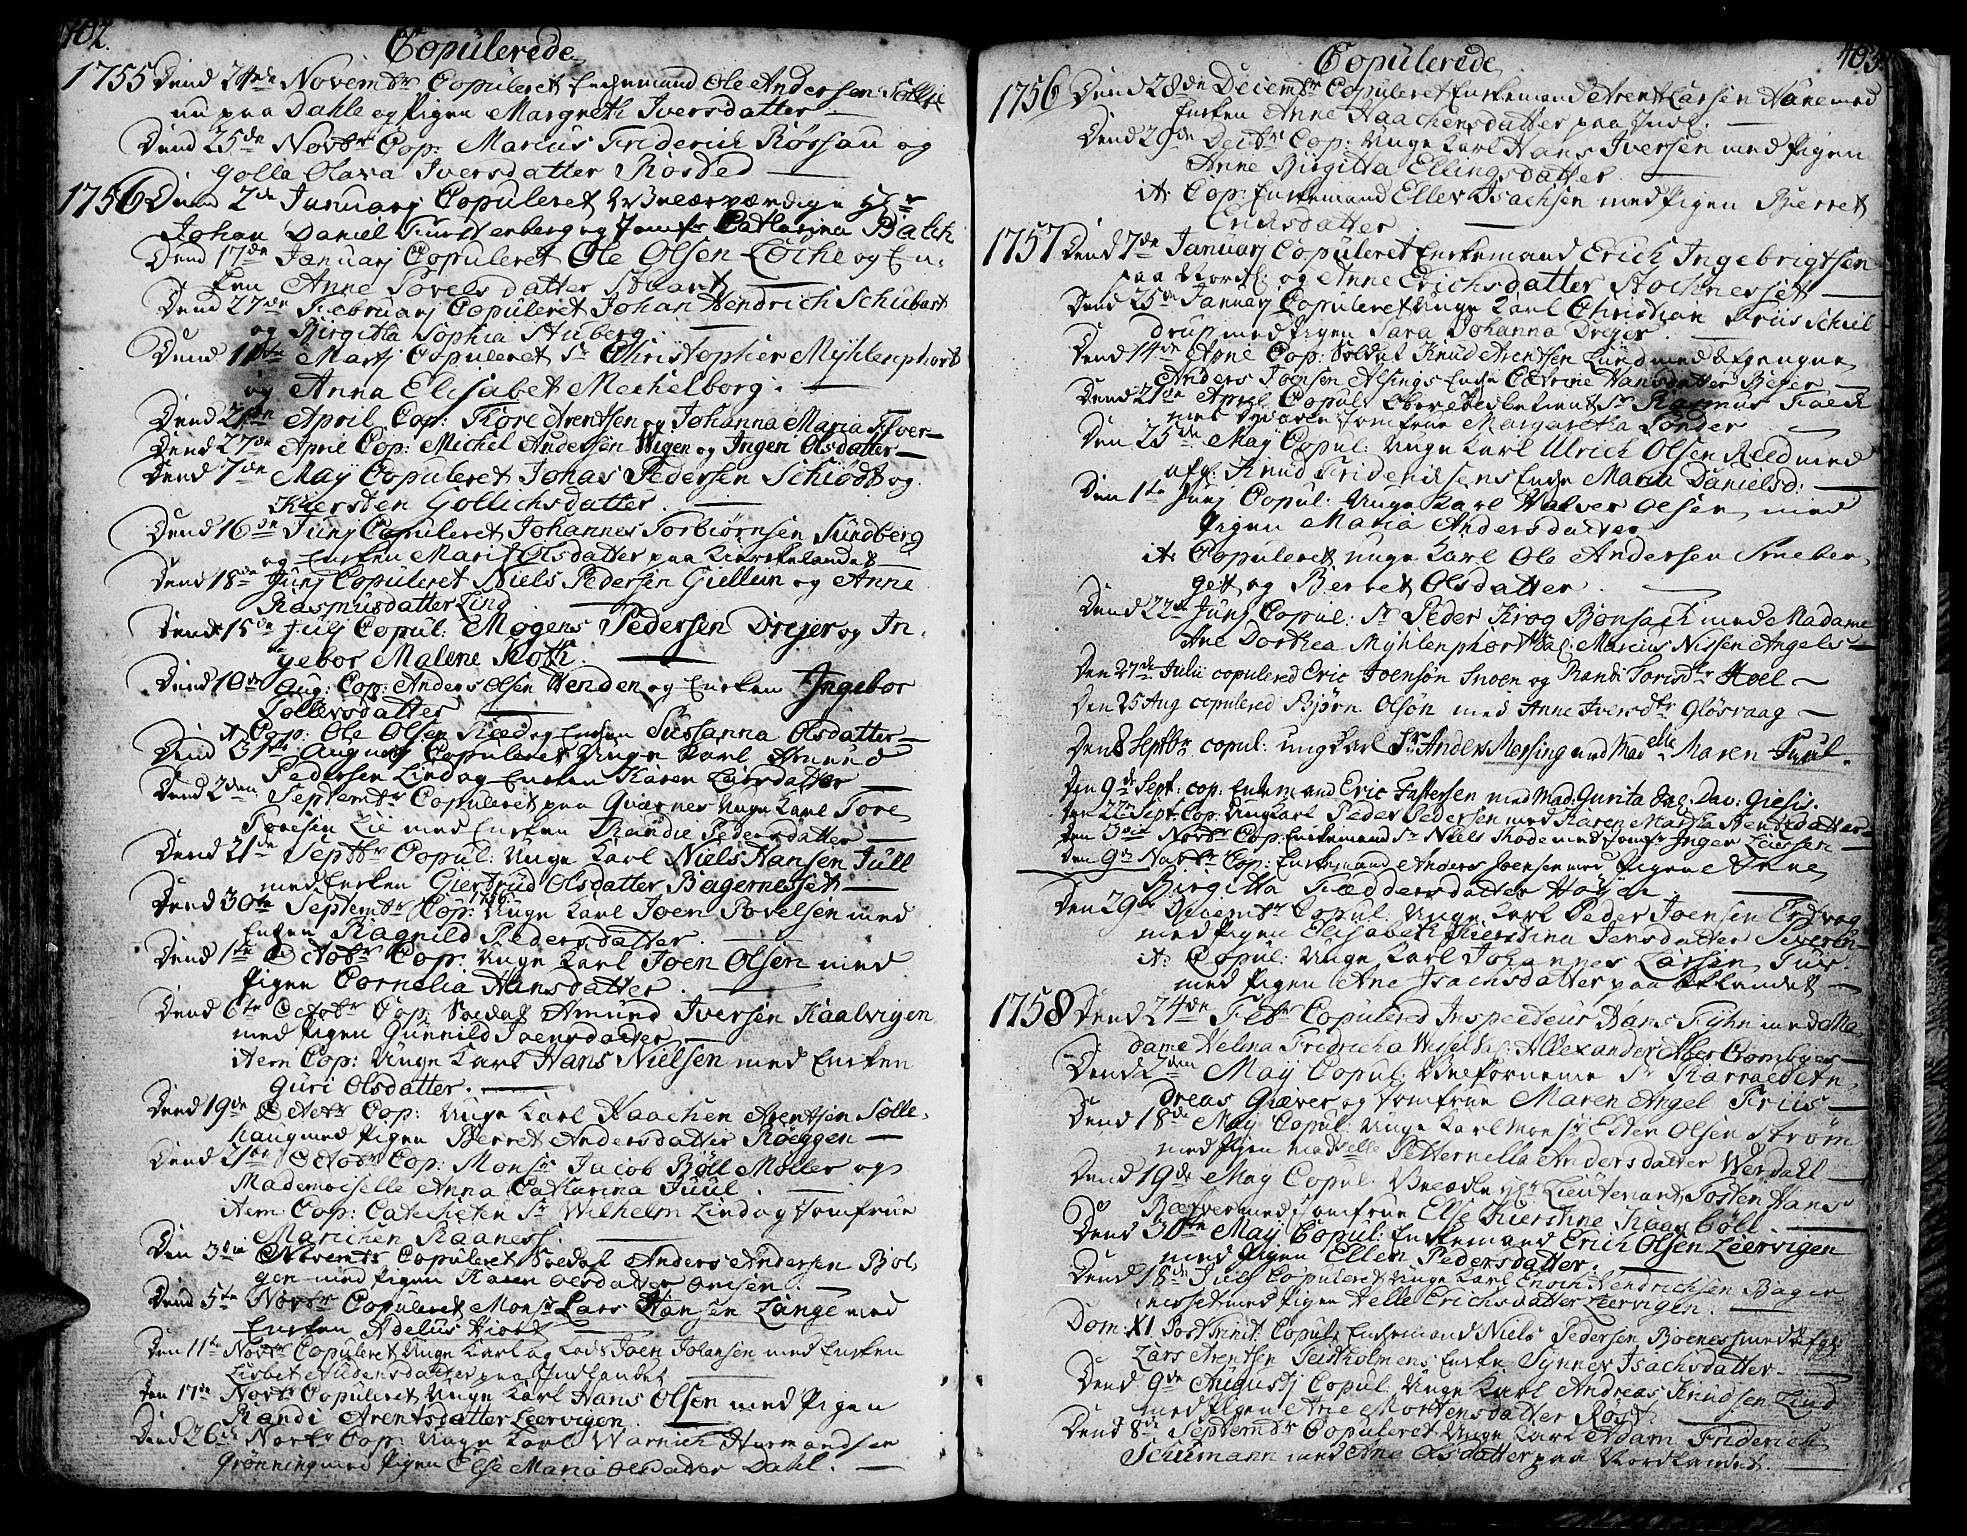 402.
Copulerede
1755 Dend 24de Novembr Copuleret Enkemand Ole Andersen Sollie
nu paa Dahle og Pigen Margreth Iversdatter
Dend 25de Novbr Cop: Marcus Friderich Røssau og
Golla Olava Iversdatter Rosted
1756 Dend 2de Januarj Copuleret Velærværdige Hr
Johan Daniel Furstenberg og Jomfr Catharina Balch
Dend 17de Januarj Copuleret Ole Olsen Løche og En-
ken Anne Povelsdatter Stuart
Dend 27de Februarj Copuleret Johan Hendrich Schubart
og Birgitta Sophia Stuberg
Dend 11te Martj Copuleret Sr Christopher Myhlenphort
og Anna Elisabet Mechelborg.
Dend 21de April Cop: Tore Arentsen og Johanna Maria
Dend 27de April Cop: Michel Andersen Wigen og Ingeri Olsdatter
Dend 7de May Copuleret Johas Pedersen Schiødt og
Kiersten Gollichsdatter.
Dend 16de Junj Copuleret Johannes Torbiørnsen Sundberg
og Enken Marit Olsdatter paa Kirkelandet
Dend 18de Junj Copuleret Niels Pedersen Giellun og Anne
Rasmusdatter Lind
Dend 15de Julj Copul: Mogens Pedersen Drejer og In-
gebor Malene Roth.
Dend 10de Aug: Cop: Anders Olsen Venden og Enken Ingebor
Tollersdatter
it Cop: Ole Olsen Rød og Enken Susanna Olsdatter
Dend 31te Augustj Copuleret Unge Karl Amund
Pedersen Lind og Enken Karen Larsdatter
Dend 2den Septembr Copuleret paa Qvernes Unge Karl Tore
Toresen Lie med Enken Randie Pedersdatter
Dend 21de Septbr Copul: Unge Karl Niels Hansen Jull
med Enken Giertrud Olsdatter Bagernesset
Dend 30te Septembr 1756 Cop: Unge Karl Joen Povelsen med
Enken Ragnild Pedersdatter.
Dend 1te Octobr Cop: Unge Karl Joen Olsen med
Pigen Cornelia Hansdatter.
Dend 6te Octobr Cop: Soldat Amund Iversen Kaalvigen
med Pigen Gunnild Joensdatter
item Cop: Unge Karl Hans Nielsen med Enken
Guri Olsdatter.
Dend 19de Octobr Cop: Unge Karl Haachen Arentsen Solle-
haug med Pigen Berret Andersdatter Røeggen
Dend 21de Octobr Cop: Monsr Jacob Bøll Møller og
Mademoiselle Anna Catharina Juul.
item Cop: Catecheten Sr Wilhelm Lind og Jomfrue
Marichen Kaaness.
Den 3die Novembr Copuleret Soldat Anders Andersen Bol-
gen med Pigen Karen Olsdatter
Dend 5te Novbr Copuleret Monsr Lars Hansen Lange med
Enken Adelus Hiort
Den 11te Novbr Copuleret Unge Karl og Joen Johansen med Enken
Lisbet Audensdatter paa Indlandet
Den 17de Novbr Copuleret Unge Karl Hans Olsen med Pigen
Randi Arentsdatter Leervigen
Dend 26de Novbr Cop: Unge Karl Warnich Harmandsen
Grønning med Pigen Else Maria Olsdatter Dahl.
403
Copulerede
1756 Dend 28de Decembr Copuleret Enkemand Arent Larsen Hane med
Enken Anne Haachensdatter paa Indl.
Dend 29de Decbr Cop: Unge Karl Hans Iversen med Pigen
Anne Birgitta Ellingsdatter
it Cop: Enkemand Elles Isachsen med Pigen Bierret
Erichsdatter
1757 Dend 7de Januarj Copuleret Enkemand Erich Ingebrigtsen
paa Nordl: og Anne Erichsdatter Stochnesset
Dend 25de Januarj Copuleret Unge Karl Christian Friis Schiel
drup med Pigen Sara Johanna Drejer
Dend 14de Cop: Soldat Knud Arentsen Lund med afgangne
Anders Joensen Alsings Enke Catrine Hansdatter Bejer
Dend 21de April Copul: Sr Rasmus Falch
met Jomfrue Margaretha Sonder
Den 25de May Copul: Unge Karl Ulrich Olsen Reed med
afg. Knud Friderichsens Enke Maria Danielsd:
Den 1te Junj Copul: Unge Karl Halver Olsen med
Pigen Maria Andersdatter
it Copuleret Unge Karl Ole Andersen Sneber-
get og Berret Olsdatter
Dend 22de Junj Copul: Sr Peder Krog Bjonsach med Madame
Ane Dorthea Myhlenphort Sal: Marcus Nissen Angels
Den 27de Julii copulered Eric Joensøn Snoen og Randi Torisdtr Hoel
Den 25 Aug copulered Bjørn Olsøn med Anne Iversdtr Gløsvaag
Den 8 Septbr copul: ung karl Sr Anders Morsing med Madelle Maren Juul.
Den 9de Sept: cop: Enkemand Eric Fastersen med Mad: Gurita Sal. Dav: Giesis.
Den 22de Sept: Cop: Ung Karl Peder Pedersen med Karen Martha Bentsdatter
Den 3die Novbr Cop: Enkemand Sr Niels Rode med Jomfr Inger Larssen
Den 9de Novbr Cop: Enkemand Anders Joensen med Pigen Anne
Birgitta Fæddersdatter Høyer
Den 29de Decembr Copul: Unge Karl Peder Joensen Ertvog
med Pigen Elisabeth Kierstina Jensdatter Severin
it Copul: Unge Karl Johannes Larsen Tuis-
med Pigen Ane Isachsdatter paa Indlandet
1758 Dend 24de Febr Copulered Inspecteur Hans Fyhn med Ma-
dame Helena Fridricha Wesel Sal: Allexander
Dend 2den May Copul: Velfornemme Sr An
dreas Giæver og Jomfrue Maren Angel Friis
Dend 18de May Copul: Unge Karl Monsr Elter Olsen Strøm
med Pigen Madelle Petternella Andersdatter Werdahl
Dend 19de May Copul: Velædle Hr Lieutenant Tosten Hans
med Jomfrue Else Kierstine Kaas Bøll.
Dend 30te May Copul: Enkemand Erich Olsen Leervigen
med Pigen Ellen Pedersdatter.
Dend 18de Julj Copuleret Unge Karl Enoch Hendrichsen Bager
nesset med Pigen Helle Erichsdatter Leervigen.
Dom: XI. Post Trinit: Copul: Enkemand Niels Pedersen Boeness med afg:
Lars Arentsen Teistholmens Enke Synnev Isachsdatter
Dend 9de Augustj Copul: Unge Karl Andreas Knudsen Lind
med Pigen Ane Mortensdatter Røgt
Dend 8de Septembr Copuleret Unge Karl Adam Friderich
Schumann med Ane Olsdatter paa Nordlandet.